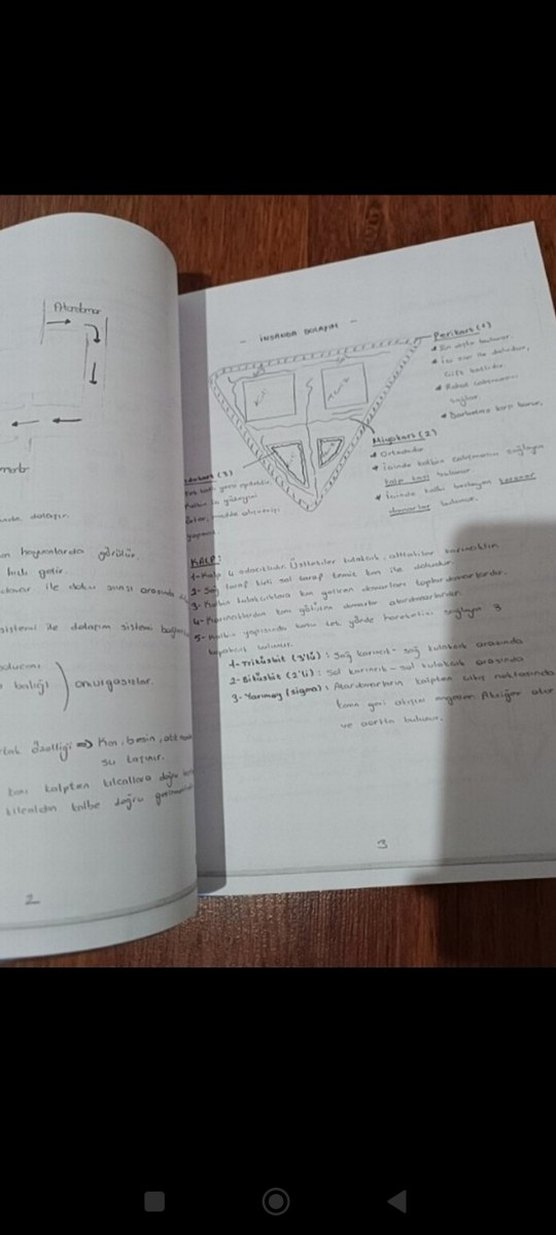 Atardamar
dolaşım.
hayvanlarda görülür.
hızlı
ile doku arası
sistemi ile dolaşım sistemi
balığı
omurgasızlar.
özelliği ⇒ Kan, besin,
su taşınır.
kanı kalpten kılcallara doğru
kılcaldan kalbe doğru
2
- İNSANDA DOLAŞIM -
Perikart (1)
En dışta bulunur.
İçi sıvı ile doludur,
Çift katlıdır.
Rahat çalışmasını
sağlar.
Darbelere karşı korur.
Kirli
Temiz
Miyokart (2)
Ortadadır
İçinde kalbin çalışmasını sağlayan
kalp kası bulunur.
İçinde kalbi besleyen koroner
damarlar bulunur.
(3)
Tek katlı yassı epiteldir.
madde alışverişi
KALP:
1- Kalp 4 odacıklıdır. Üsttekiler kulakcık, alttakiler karıncıktır.
2- Sağ taraf kirli sol taraf temiz kan ile doludur.
3- Kalbin kulakcıklara kan getiren damarları toplardamarlardır.
4- Karıncıklardan kanı götüren damarlar atardamarlardır.
5- Kalbin yapısında kanın tek yönde hareketini sağlayan 3
kapakcık bulunur.
1- Triküsbit (3'lü): Sağ karıncık - sağ kulakcık arasında
2- Biküsbit (2'li): Sol karıncık - sol kulakcık arasında
3- Yarımay (sigma): Atardamarların kalpten çıkış noktasında
kanın geri akışını engeller. Akciğer atar
ve aortta bulunur.
3